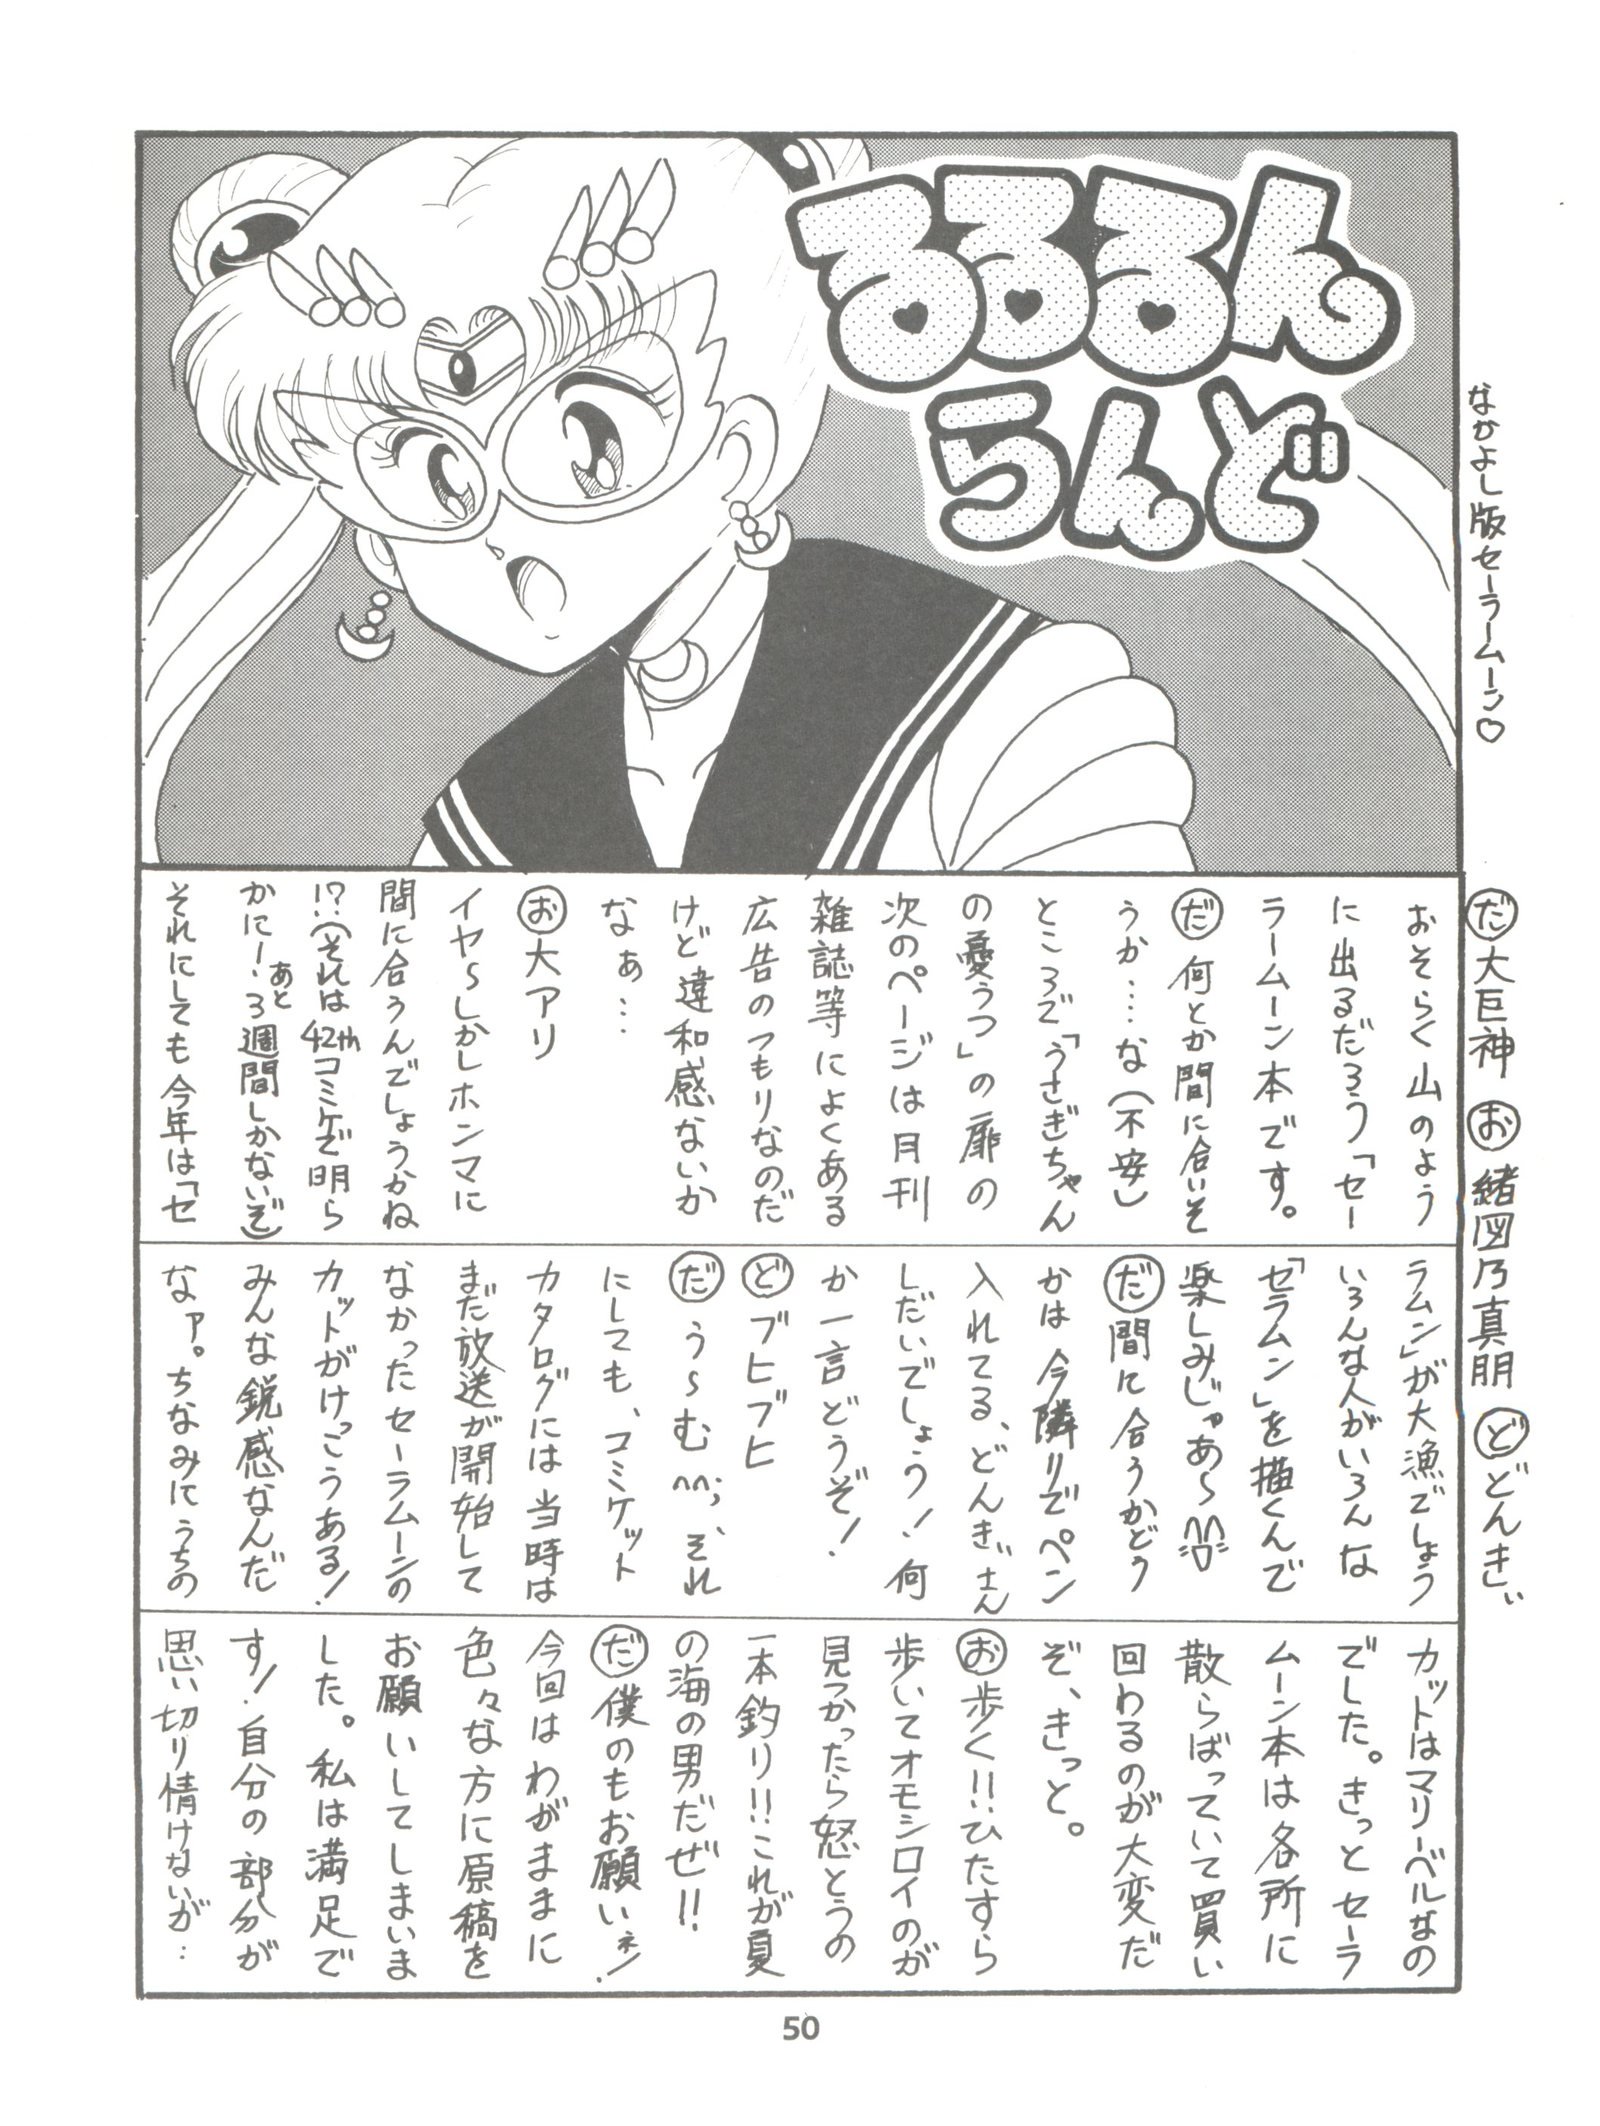 るるるん
らんど
なかよし版セーラームーン♡
だ大巨神 お緒図乃真朋 どどんきぃ
おそらく山のよう
に出るだろう「セー
ラームーン本です。
だ何とか間に合いそ
うか……な(不安)
ところで「うさぎちゃん
の憂うつ」の扉の
次のページは月刊
雑誌等によくある
広告のつもりなのだ
けど違和感ないか
なぁ…
お大アリ
イヤ〜しかしホンマに
間に合うんでしょうかね
!?(それは42thコミケで明ら
かにー!あと3週間しかないぞ)
それにしても今年は「セ
ラムン」が大漁でしょう
いろんな人がいろんな
「セラムン」を描くんで
楽しみじゃあ〜
だ間に合うかどう
かは今隣りでペン
入れてる、どんきぃさん
しだいでしょう!何
か一言どうぞ!
どブヒブヒ
だう〜む^^;、それ
にしても、コミケット
カタログには当時は
まだ放送が開始して
なかったセーラームーンの
カットがけっこうある!
みんな鋭感なんだ
なァ。ちなみにうちの
カットはマリーベルなの
でした。きっとセーラ
ムーン本は各所に
散らばっていて買い
回わるのが大変だ
ぞ、きっと。
お歩く!!ひたすら
歩いてオモシロイのが
見つかったら怒とうの
一本釣り!!これが夏
の海の男だぜ!!
だ僕のもお願いネ!
今回はわがままに
色々な方に原稿を
お願いしてしまいま
した。私は満足で
す!自分の部分が
思い切り情けないが…
50